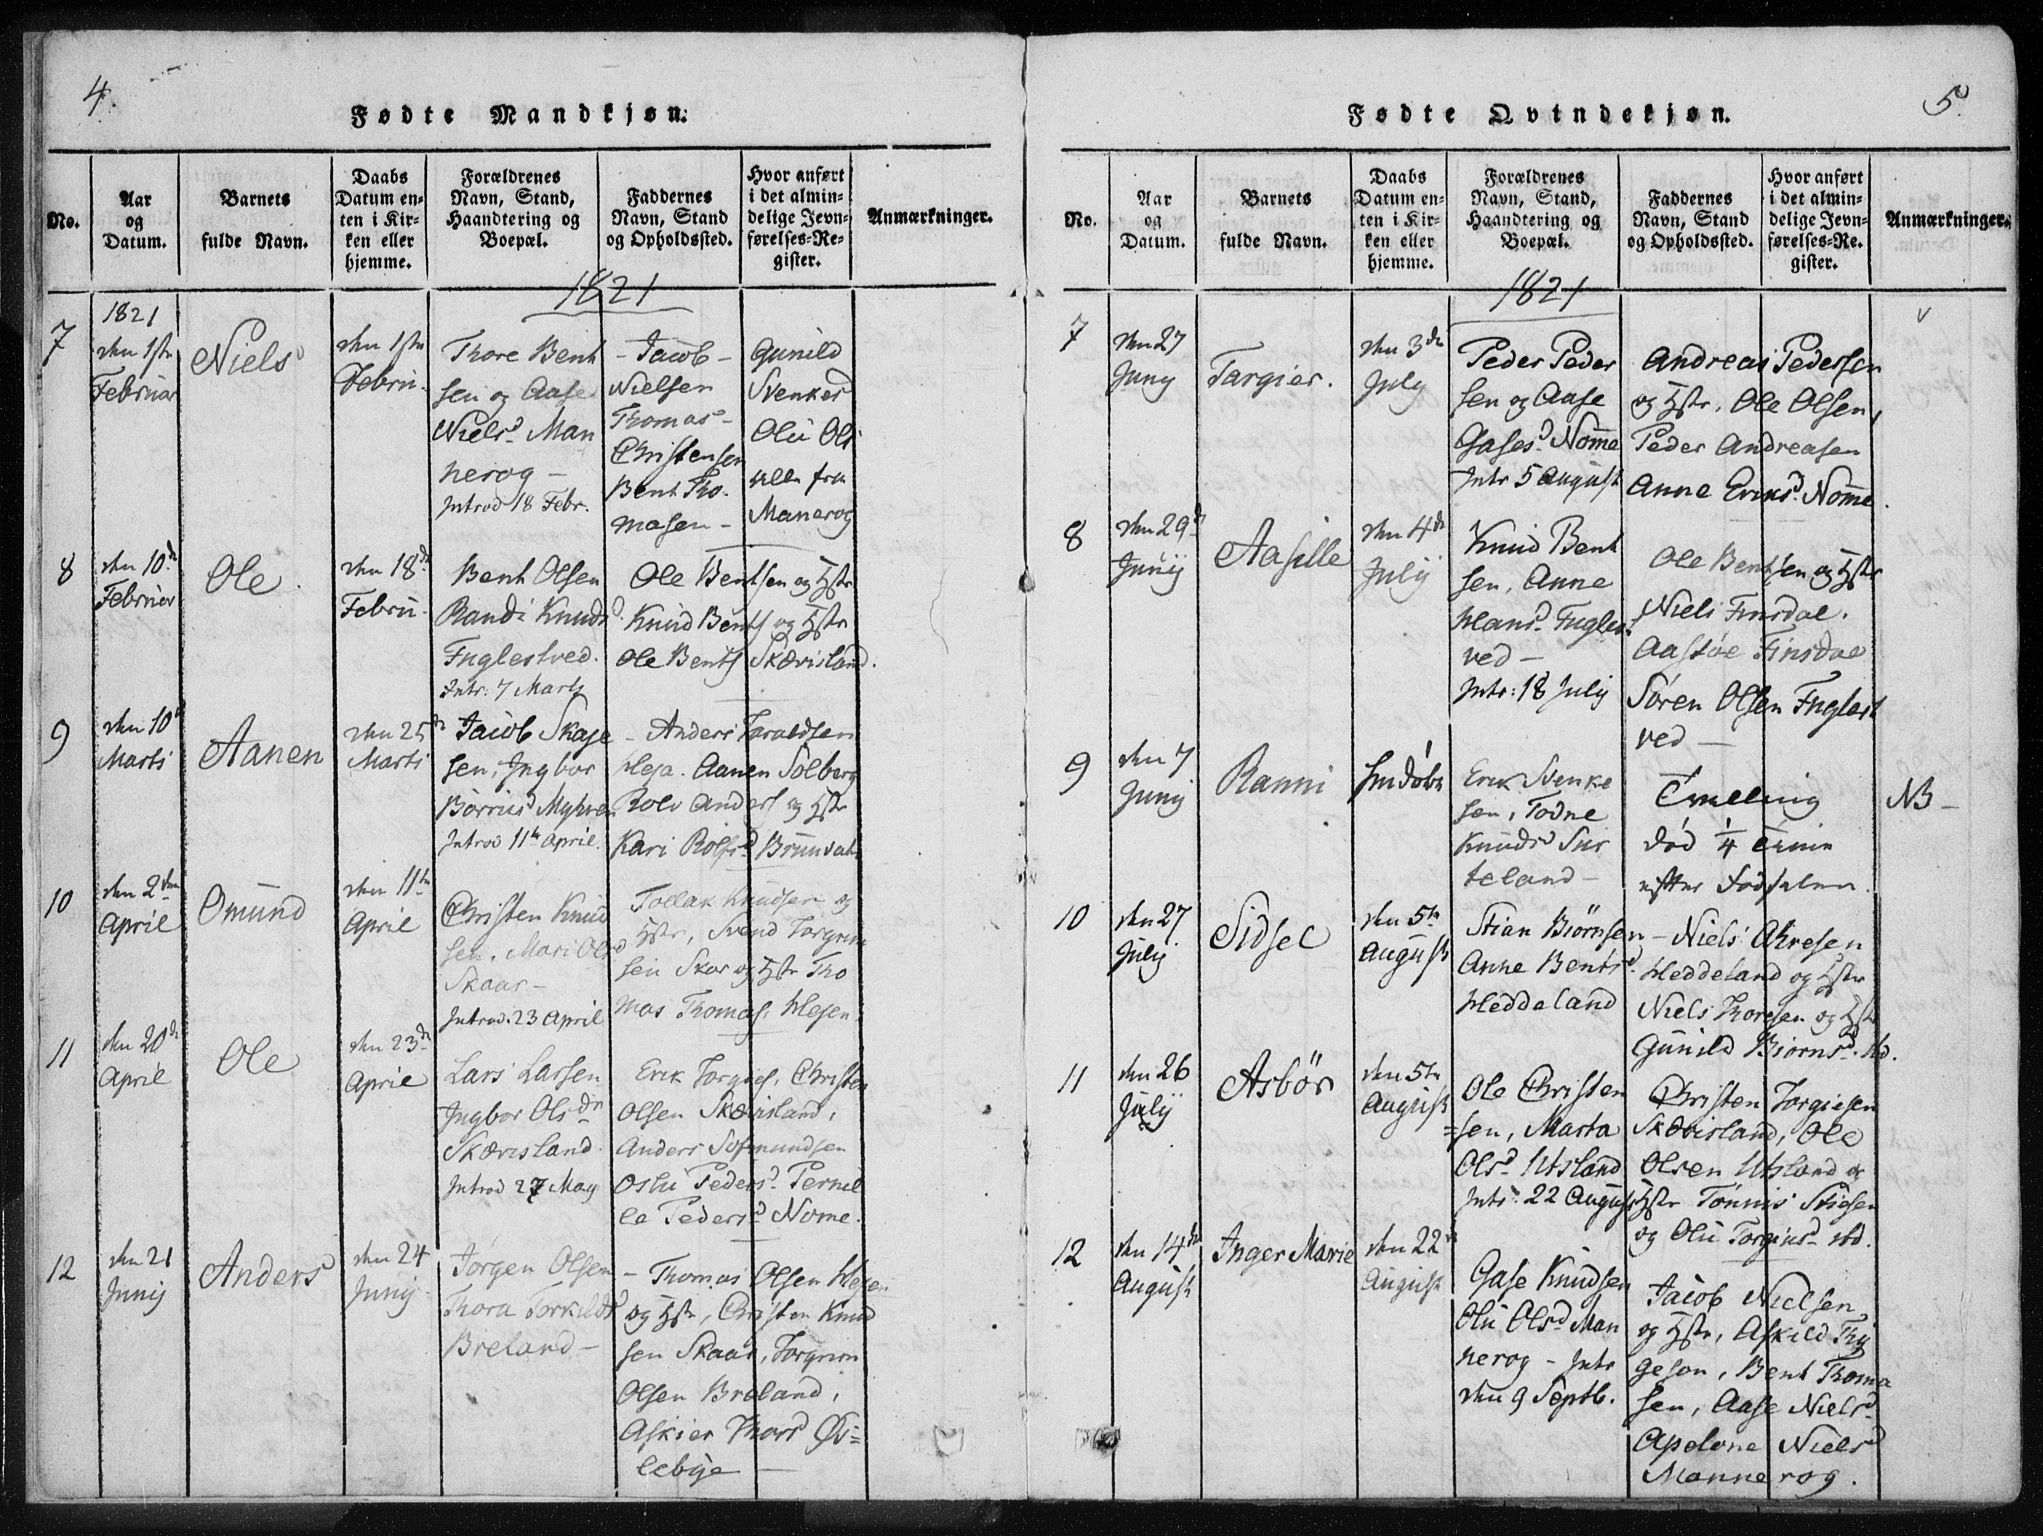 4.
Fødte Mandkjøn.
No.
Aar
og
Datum.
Barnets
fulde Navn.
Daabs
Datum en-
ten i Kir-
ken eller
hjemme.
Forældrenes
Navn, Stand,
Haandtering og
Boepæl.
Faddernes
Navn, Stand
og Opholdssted.
Hvor anført
i det almin-
delige Jevn-
førelses-Re-
gister.
Anmærkninger.
1821
7
1821
den 1ste
Februar
Niels
den 1ste
Febru.
Thore Bent
sen og Aase
Nielsd. Man
nerog -
Introd 18 Febr.
- Jacob -
Nielsen
Thomas -
Christensen
Bent Tho-
masen -
Gunild
Svenkesd
Olu Ols
alle fra
Manerog
8
den 10de
Februar
Ole
den 18de
Febru.
Bent Olsen
Randi Knudsd.
Fuglestved.
Intr: 7 Marts
Ole Bentsen og Hstr
Knud Bents og Hstr
Ole Bents Skærisland.
9
den 10de
Marts
Aanen
den 25de
Marts
Jacob Skaje
sen, Ingbor
Børriusd Myhren
Introd 11te April.
- Anders Haraldsen
Heja. Aanen Solberg
Rolv Anders og Hstr
Kari Rolfsd Brunvatn
10
den 2den
April
Omund
den 11te
April
Christen Knud
sen, Mari Olsd
Skaar -
Introd. 23 April
Tollak Knudsen og
Hstr, Svend Torgrim
sen Skar og Hstr Tho
mas Thomas. Hesen.
11
den 20de
April
Ole
den 23de
April
Lars Larsen
Ingbor Olsdr
Skærisland.
Introd 27 May
Erik Torgies, Christen
Olsen Skærisland,
Anders Sofmundsen
Oslu Pedersd. Pernil
le Pedersd. Nome.
12
den 21
Junij
Anders
den 24
Junij
Jørgen Olsen
Thora Torkildsd
Breland -
- Thomas Olsen Hesen
og Hstr, Christen Knud
sen Skaar, Torgrim
Olsen Breland,
Askier Thord Øs=
lebye -
5
Fødte Qvindekjøn.
No.
Aar
og
Datum.
Barnets
fulde Navn.
Daabs
Datum en-
ten i Kir-
ken eller
hjemme.
Forældrenes
Navn, Stand,
Haandtering og
Boepæl.
Faddernes
Navn, Stand
og Opholdssted.
Hvor anført
i det almin-
delige Jevn-
førelses-Re-
gister.
Anmærkninger.
1821
7
den 27
Juny
Targier.
den 3de
July
Peder Peder
sen og Aase
Gasesd Nome
Intr 5 August
Andreas Pedersen
og Hstr. Ole Olsen,
Peder Andreasen
Anne Eriksd. Nome.
8
den 29de
Junij
Aasille
den 4de
Julij
Knud Bent
sen, Anne
Hansd. Fuglest
ved -
Intr: 18 Julij
Ole Bentsen og Hstr
Niels Finsdal.
Aasløe Finsdal
Søren Olsen Fuglest
ved -
9
den 7
Junij
Ranni
hmdøbt
Erik Svenke
sen, Todne
Knudsd Sur
teland -
Tvilling
død 1/4 Time
efter Fødselen.
NB -
10
den 27
Julij
Sidsel
den 5te
August
Stian Biørnsen
Anne Bentsd.
Heddeland
- Niels Okresen
Heddeland og Hstr
Niels Thoresen og Hstr
Gunild Biørnsd. Hd.
11
den 26
Julij
Asbør
den 5te
August
Ole Christen
=sen, Marta
Olsd Utsland
Intr: 22 August
Christen Torgiesen
Skærisland, Ole
Olsen Utsland og
Hstr Tønnis Stiesen
og Olu Torgiusd. ibd.
12
den 14de
August
Inger Marie
den 22
August
Gase Knudsen
Olu Olsd Man
nerog - Intr
den 9 Septb.
Jacob Nielsen
og Hstr, Askild Thy
geson, Bent Thoma
sen, Aase Nielsd.
Apelone Nielsd
Mannerog.